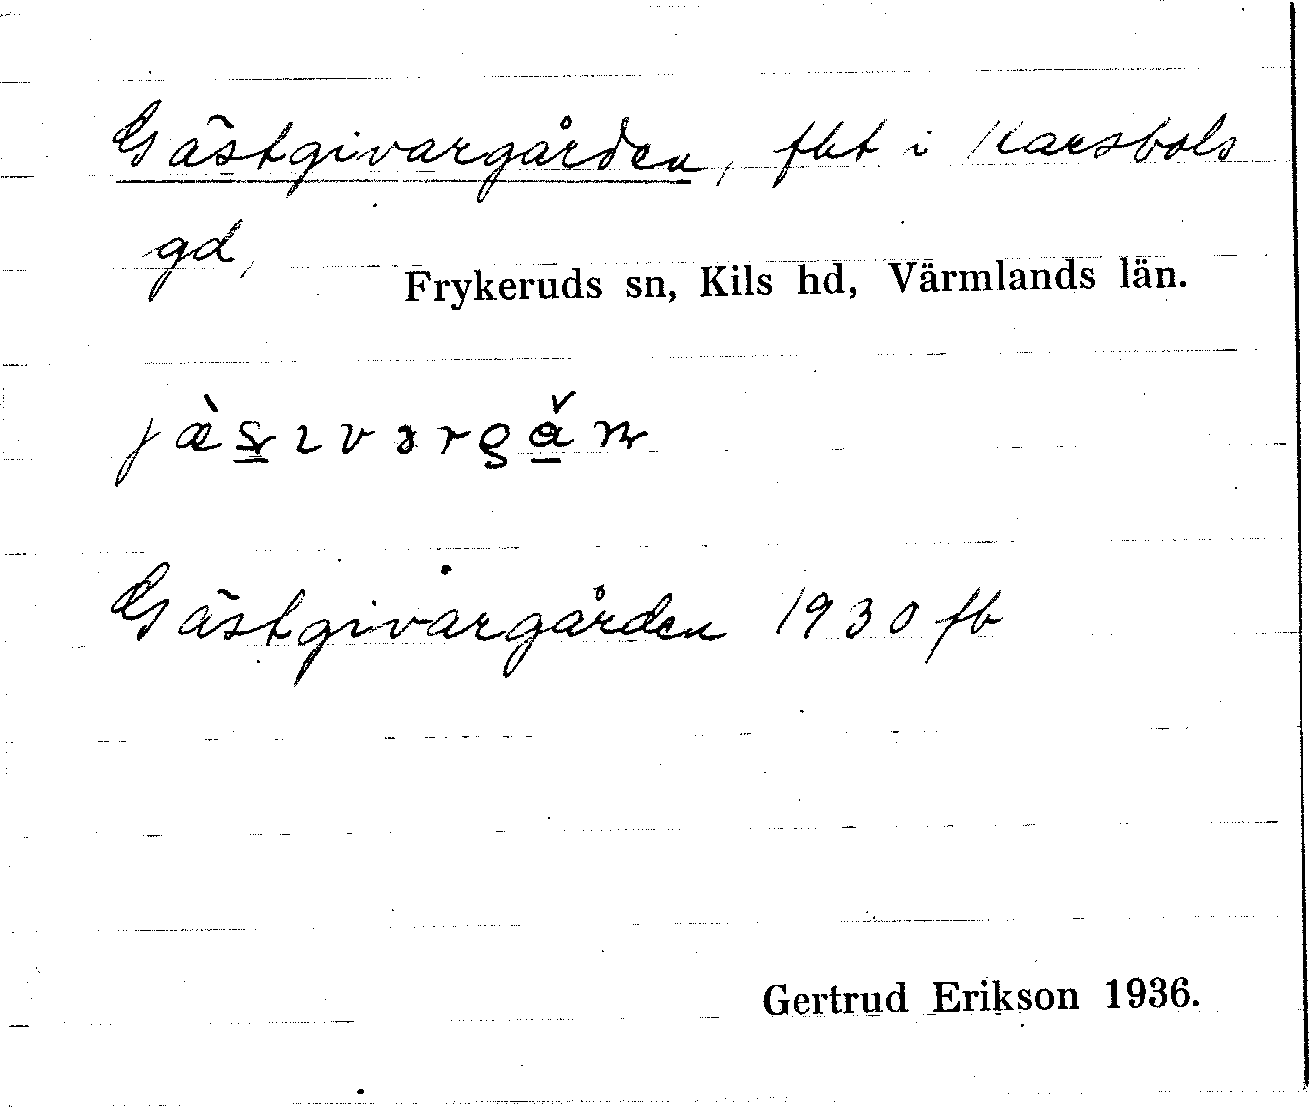 Gästgivargården, fht i Karsbols
gd,
Frykeruds sn, Kils hd, Värmlands län.
Gästgivargården 1930 fb
Gertrud Erikson 1936.